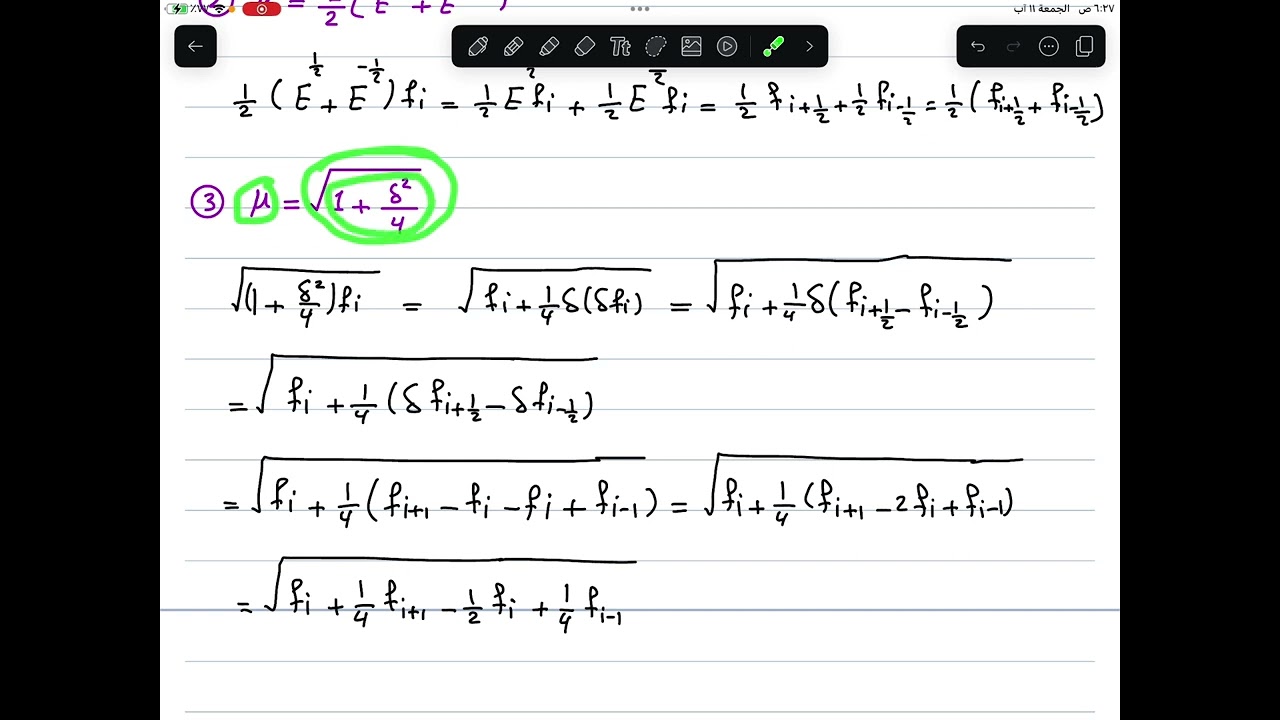 ٦:٢٧ ص الجمعة ١١ آب
½ (E^½ + E^-½) fᵢ = ½ E fᵢ + ½ E fᵢ = ½ f_{i+½} + ½ f_{i-½} = ½ (f_{i+½} + f_{i-½})
③ μ = √(1 + δ²/4)
√((1 + δ²/4) fᵢ) = √(fᵢ + ¼ δ(δfᵢ)) = √(fᵢ + ¼ δ(f_{i+½} - f_{i-½}))
= √(fᵢ + ¼ (δ f_{i+½} - δ f_{i-½}))
= √(fᵢ + ¼ (f_{i+1} - fᵢ - fᵢ + f_{i-1})) = √(fᵢ + ¼ (f_{i+1} - 2fᵢ + f_{i-1}))
= √(fᵢ + ¼ f_{i+1} - ½ fᵢ + ¼ f_{i-1})